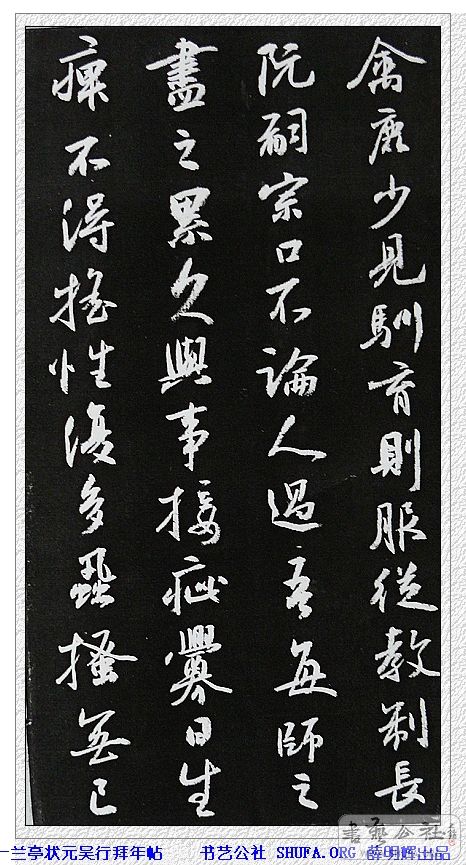 禽鹿少見馴育則服從教制長
阮嗣宗口不論人過吾每師之
盡之累久與事接疵釁日生
痺不得搖性復多蝨搔無已
書藝公社
一兰亭状元吴行拜年帖 书艺公社 SHUFA.ORG 薛明辉出品